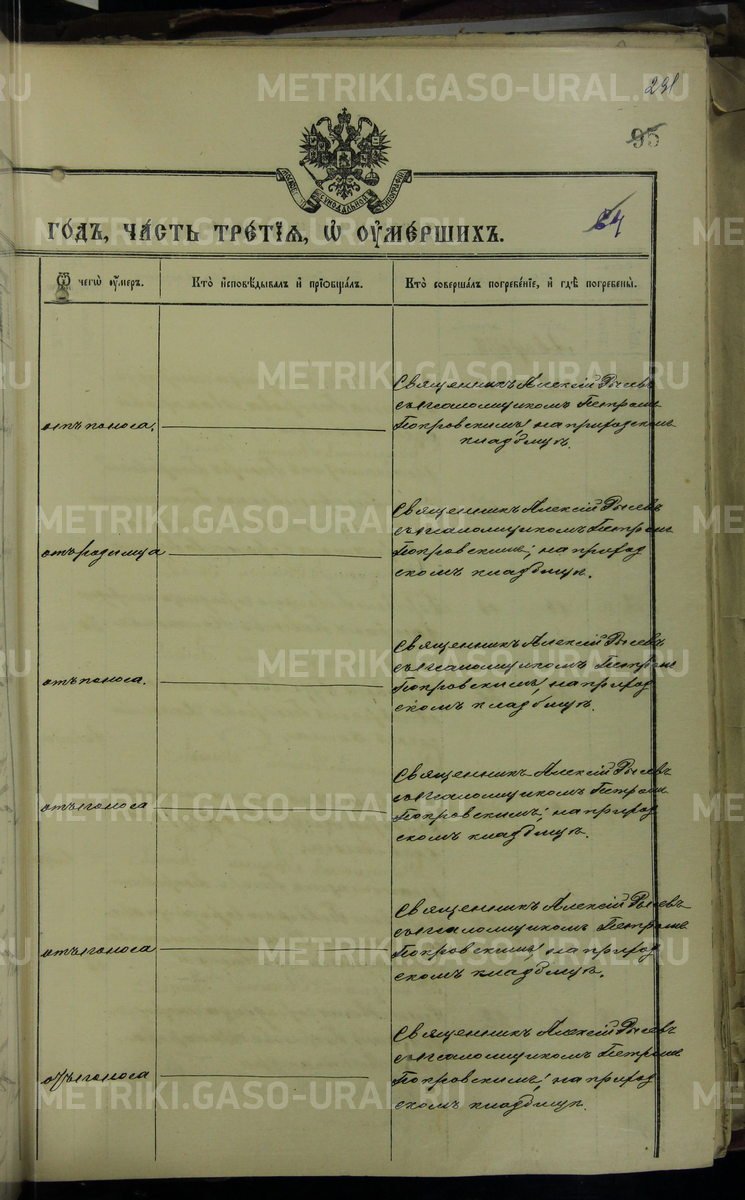 231
95
64
ГОДЪ, ЧАСТЬ ТРЕТІЯ, Ѡ ОУМЕРШИХЪ.
Ѿ чегѡ оумеръ.
Кто исповѣдывалъ и пріобщалъ.
Кто совершалъ погребеніе, и гдѣ погребены.
отъ поноса.
Священникъ Алексій
съ псаломщикомъ Петромъ
Покровскимъ, на приходскомъ
кладбищѣ.
отъ родимца
Священникъ Алексій
съ псаломщикомъ Петромъ
Покровскимъ, на приход
скомъ кладбищѣ.
отъ поноса.
Священникъ Алексій
съ псаломщикомъ Петромъ
Покровскимъ, на приход
скомъ кладбищѣ.
отъ поноса
Священникъ Алексій
съ псаломщикомъ Петромъ
Покровскимъ, на приход
скомъ кладбищѣ.
отъ поноса
Священникъ Алексій
съ псаломщикомъ Петромъ
Покровскимъ, на приход
скомъ кладбищѣ.
отъ поноса
Священникъ Алексій
съ псаломщикомъ Петромъ
Покровскимъ, на приход
скомъ кладбищѣ.
METRIKI.GASO-URAL.RU